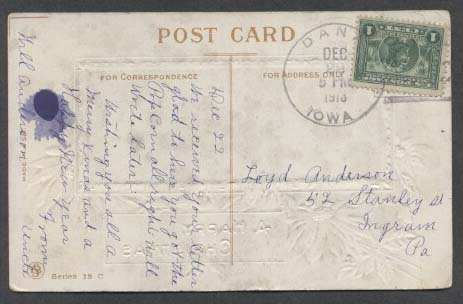 POST CARD
FOR CORRESPONDENCE
FOR ADDRESS ONLY
DANA
DEC
5 PM
1913
IOWA
1
1
Dec 22
We received your letter
glad to hear you got the
Pop Corn all right will
write later.
Wishing you all a
Merry Xmas and a
Happy New Year
From
Uncle
Will Anderson
Loyd Anderson
52 Stanley st
Ingram
Pa
Series 15 C